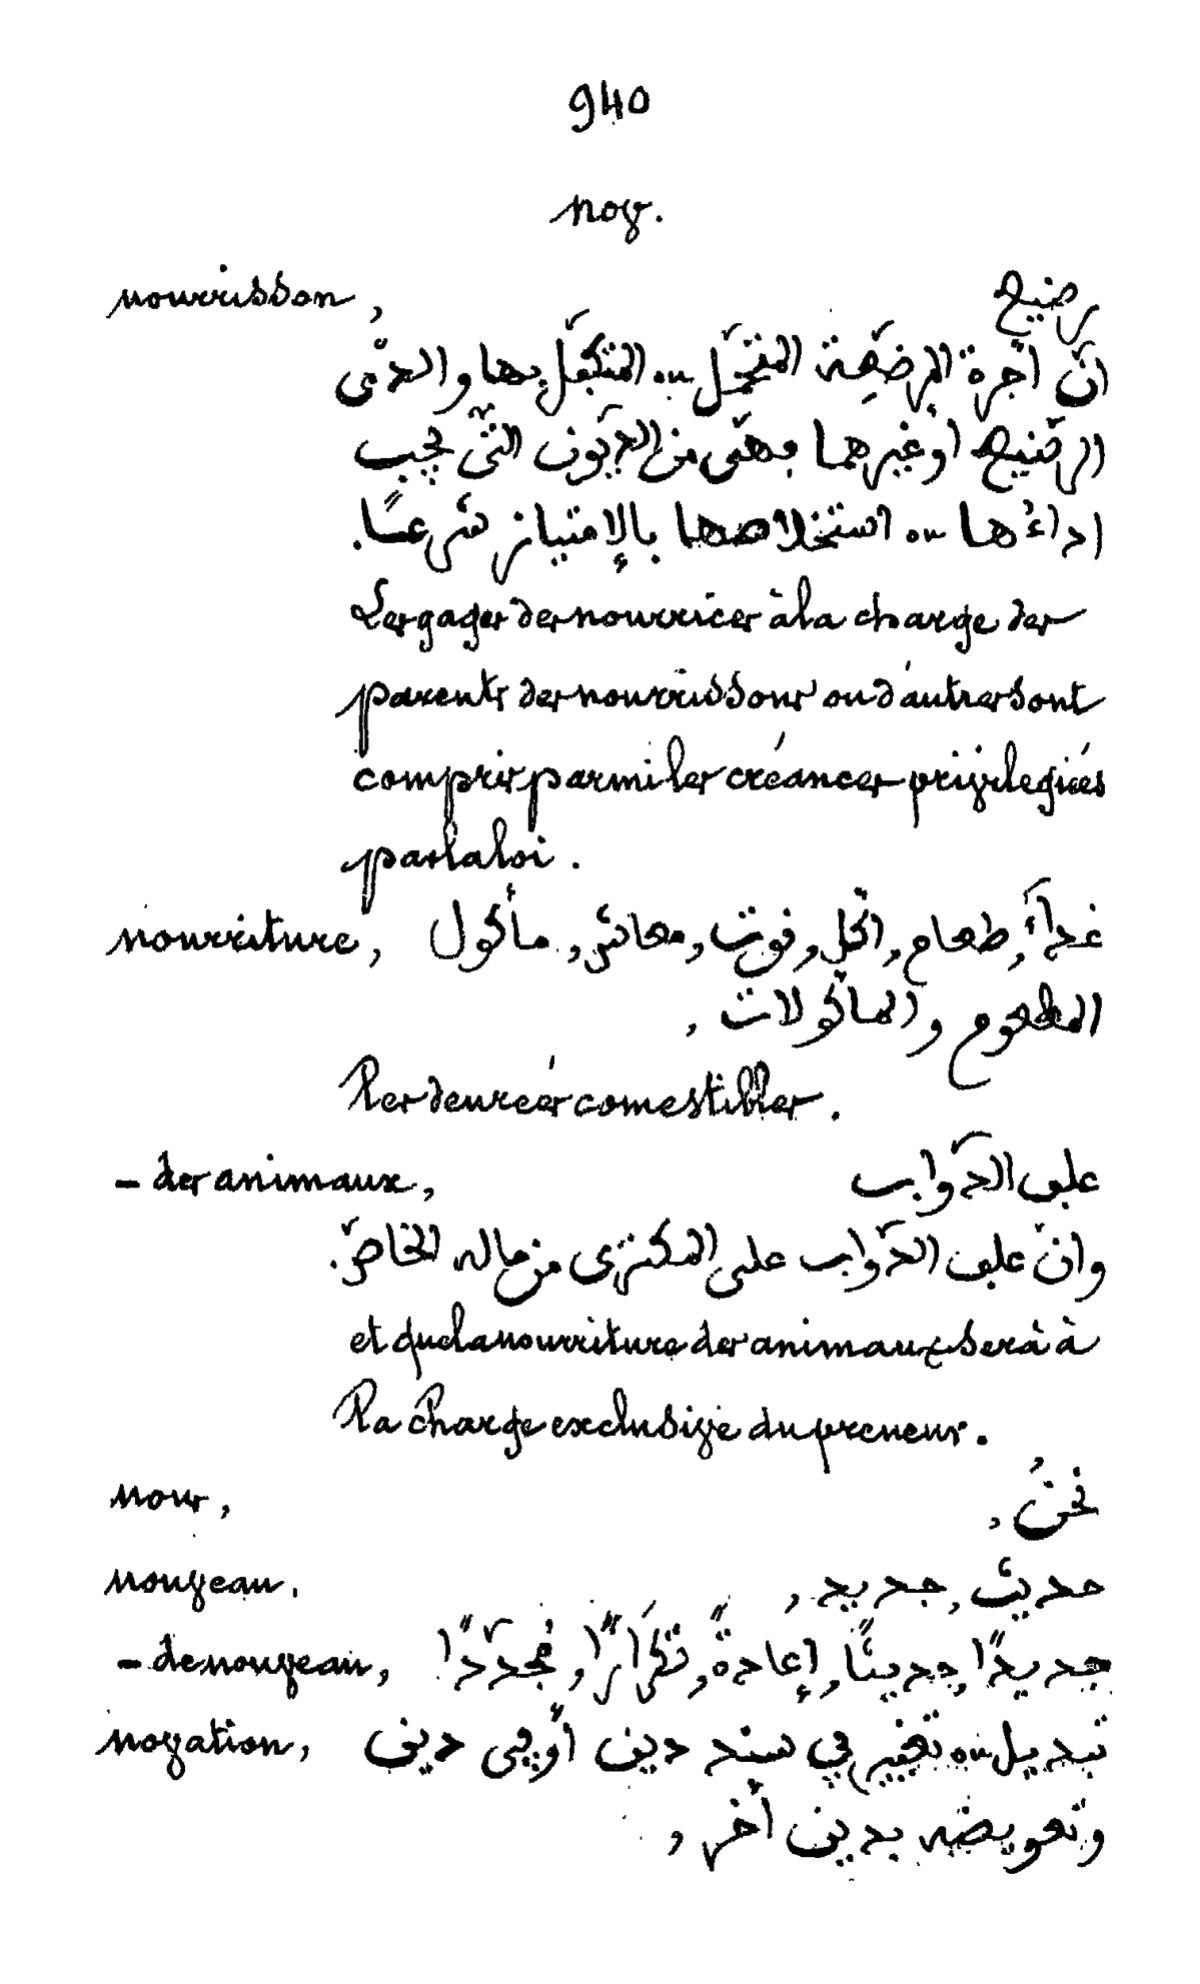 940
nov.
nourrisson, رضيع
انّ أجرة المرضِعة المتحمّل ou المتكفّل بها والدىْ
الرضيع أو غيرهما فهى من الديون التى يجب
اداءُها ou استخلاصها بالإمتياز شرعًا.
Les gages des nourrices à la charge des
parents des nourrissons ou d'autres sont
compris parmi les créances privilegiées
par la loi.
nourriture, غداءٌ, طعام, اكل, قوت, معاش, مأكول
المطعوم والمأكولات,
les denrées comestibles.
- des animaux, علف الدّواب
وانّ علف الدّواب على المكترى من ماله الخاصّ.
et que la nourriture des animaux sera à
la charge exclusive du preneur.
nous, نحنُ,
nouveau, حديث, جديد,
- de nouveau, جديدًا, حديثًا, إعادةً, تكرارًا, مجدّدًا
novation, تبديل ou تغيير في سند دين أو في دين
وتعويضه بدين أخر,